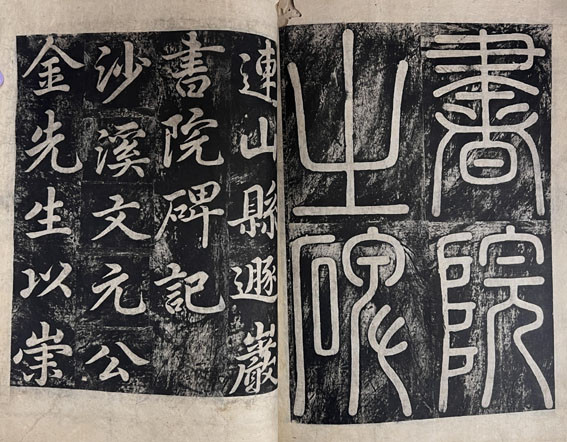 書院
之碑
連山縣遯巖
書院碑記
沙溪文元公
金先生以崇